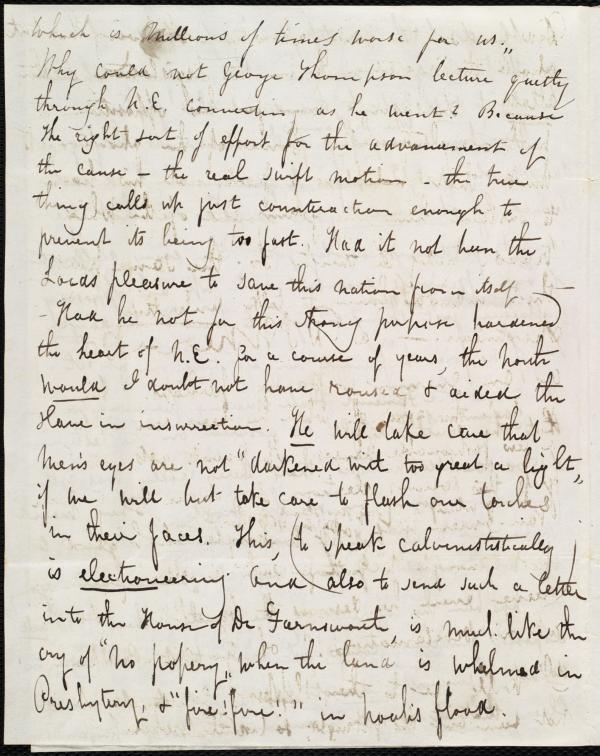 which is Millions of times worse for us.„
Why could not George Thompson lecture quietly
through N.E. converting as he went? Because
the right sort of effort for the advancement of
the cause – the real swift motion – the true
thing, calls up just counteraction enough to
prevent its being too fast. Had it not been the
Lords pleasure to save this nation from itself
– Had he not for this strong purpose hardened
the heart of N.E. for a course of years, the north
would I doubt not have roused & aided the
slave in insurrection. He will take care that
men's eyes are not "darkened with too great a light„
if we will but take care to flash our torches
in their faces. This, (to speak calvinistically)
is electioneering and also to send such a letter
into the House of Dr Farnsworth, is much like the
cry of "no popery„ when the land is whelmed in
Presbytery, & "fire! fire!" in Noah's flood.